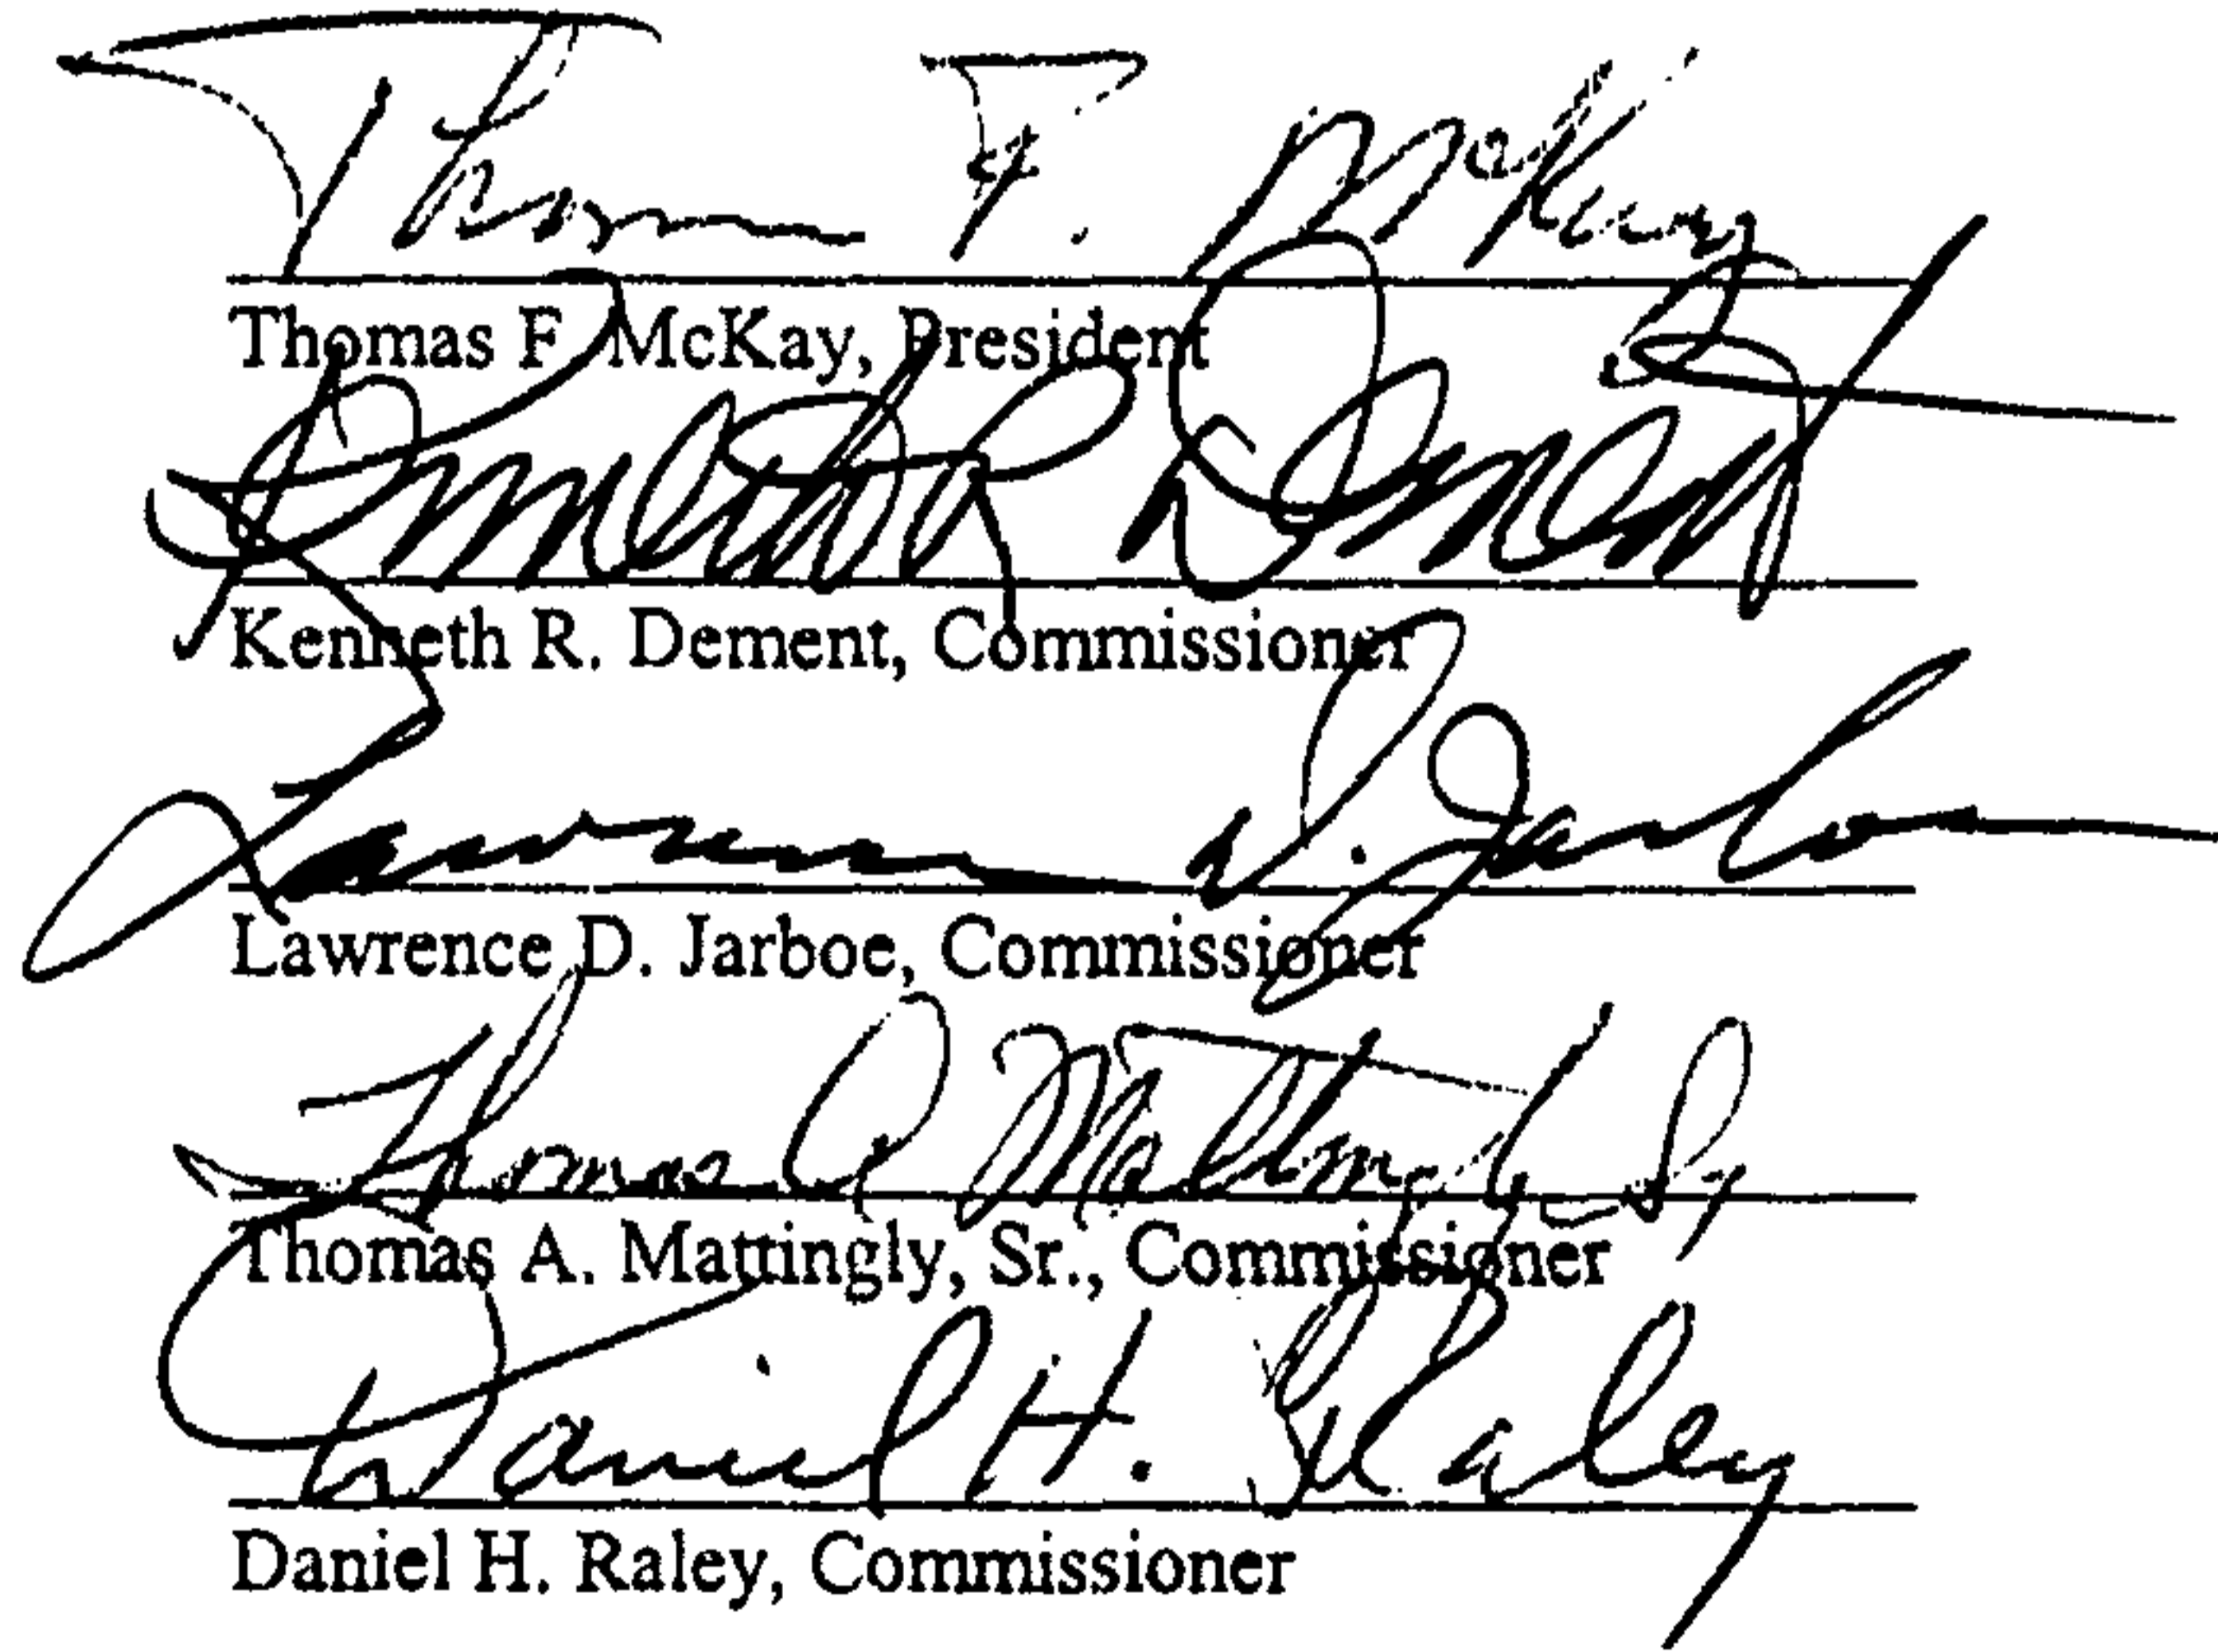 Thomas F. McKay
Thomas F. McKay, President
Kenneth R. Dement
Kenneth R. Dement, Commissioner
Lawrence D. Jarboe
Lawrence D. Jarboe, Commissioner
Thomas A. Mattingly, Sr
Thomas A. Mattingly, Sr., Commissioner
Daniel H. Raley
Daniel H. Raley, Commissioner